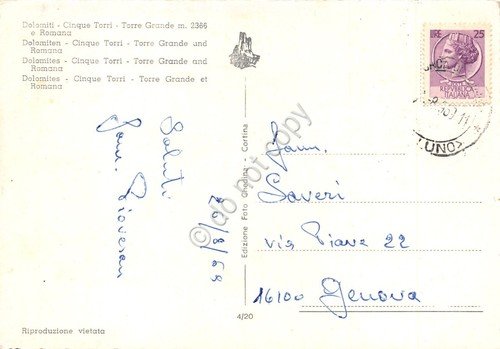 Dolomiti - Cinque Torri - Torre Grande m. 2366
e Romana
Dolomiten - Cinque Torri - Torre Grande und
Romana
Dolomites - Cinque Torri - Torre Grande and
Romana
Dolomites - Cinque Torri - Torre Grande et
Romana
LIRE 25
REPVBBLICA
ITALIANA
Saluti
Fam. Piovesan
26/8/69
Edizione Foto Ghedina - Cortina
©do not copy
Fam.
Saveri
via Piave 22
16100 Genova
4/20
Riproduzione vietata